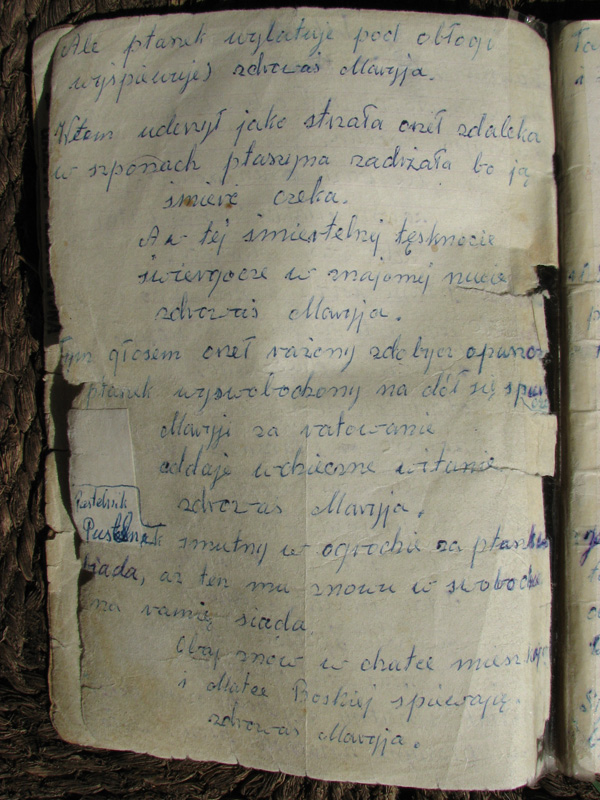 Ale ptanek wylatuje pod obłogi
wyśpiewuje) zdrowas Maryja.
Wtem udeżył jako strzała orzeł zdaleka
w szponach ptaszyna zadrżała bo ją
śmierć czeka.
A w tej śmiertelnej tęsknocie
świergocze w znajomej nucie
zdrowaś Maryja.
Tym głosem orzeł rażony zdobycz opuszcza
ptanek wyswobodzony na dół się spu
Maryji za ratowanie
oddaje wdzieczne witanie
zdrowas Maryja.
Pustelnik
Pustelnik smutny w ogrodzie za ptanki
siada, az ten mu znowu w swobodzie
na ramię siada
Obaj znów w chatce mieszkają
i Matce Boskiej śpiewają.
zdrowas Maryja.